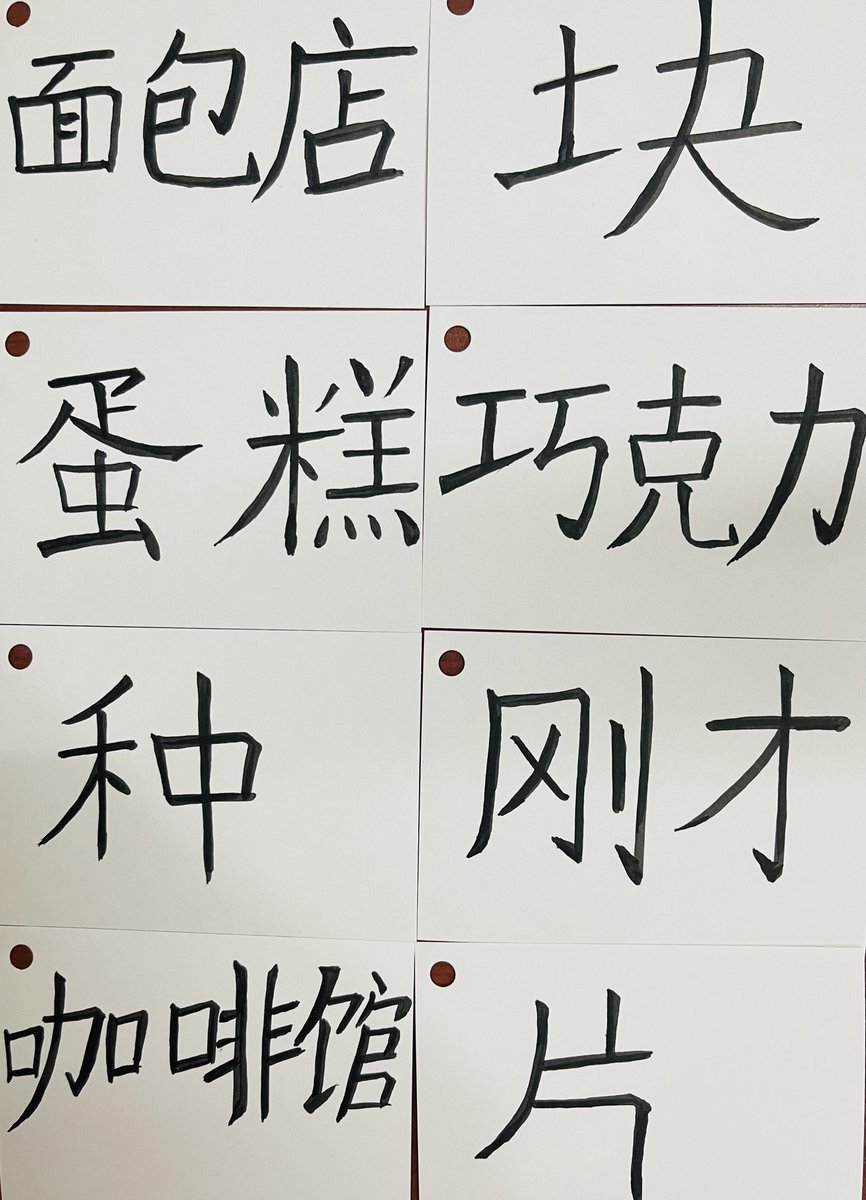 面包店
块
蛋糕
巧克力
种
刚才
咖啡馆
片